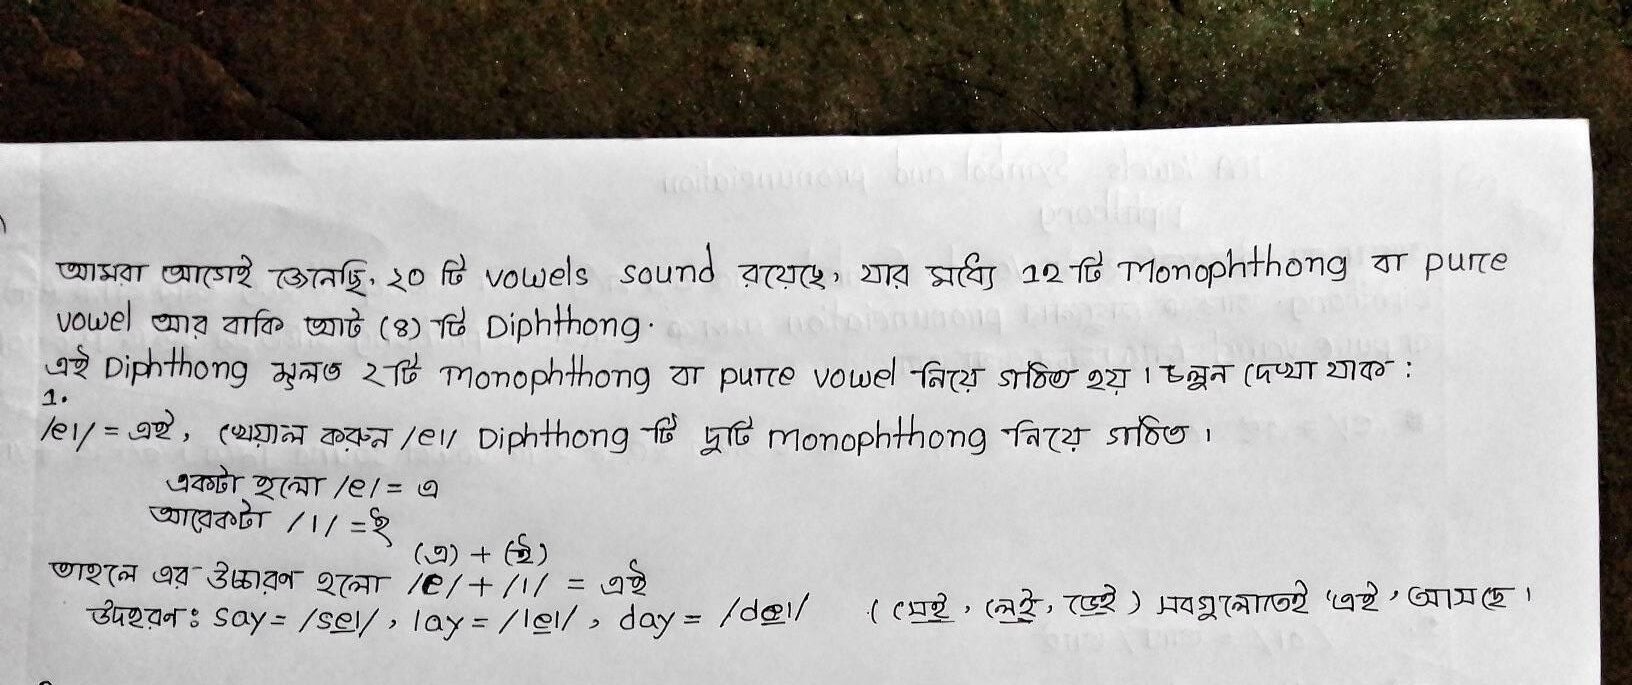 আমরা আগেই জেনেছি, ২০ টি vowels sound রয়েছে, যার মধ্যে 12 টি Monophthong বা pure
vowel আর বাকি আট (8) টি Diphthong.
এই Diphthong মূলত ২টি monophthong বা pure vowel নিয়ে গঠিত হয়। চলুন দেখা যাক :
1.
/eI/ = এই, খেয়াল করুন /eI/ Diphthong টি দুটি monophthong নিয়ে গঠিত।
একটা হলো /e/ = এ
আরেকটা /I/ = ই
(এ) + (ই)
তাহলে এর উচ্চারণ হলো /e/ + /I/ = এই
উদহরন : say = /seI/, lay = /leI/, day = /deI/ (সেই, লেই, ডেই) সবগুলোতেই 'এই' আসছে।